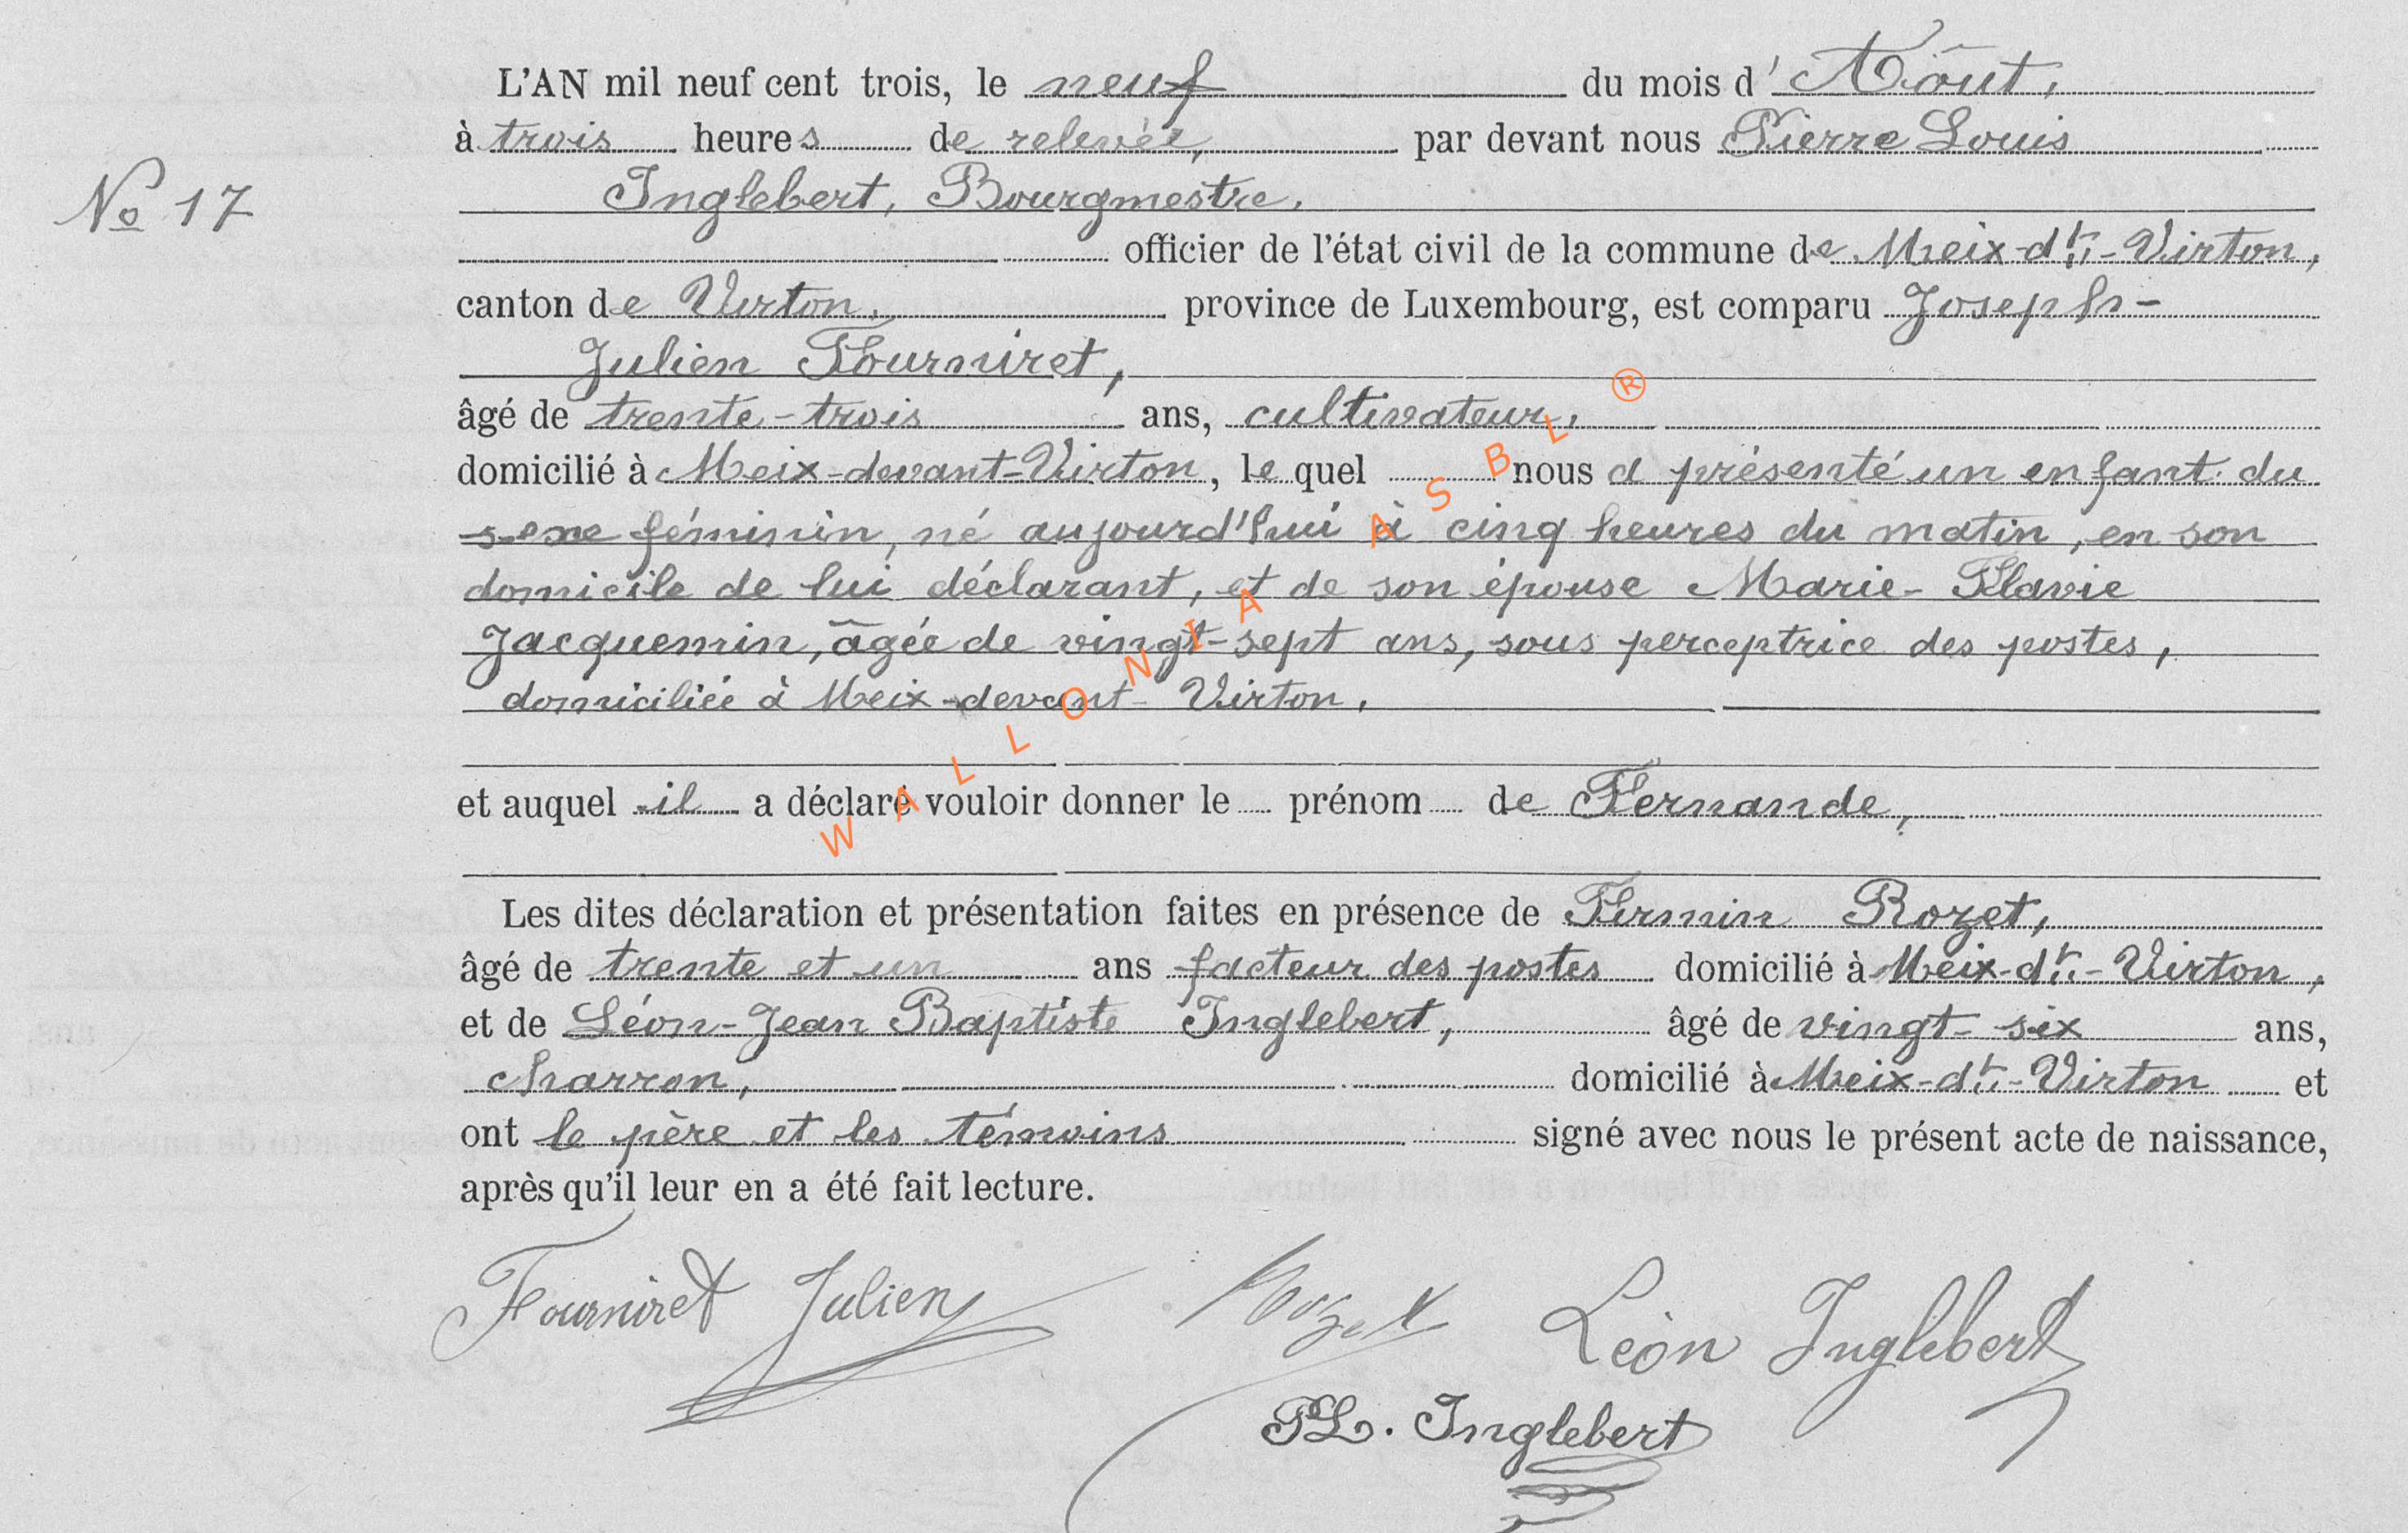 L'AN mil neuf cent trois, le neuf du mois d'Aôut,
à trois heures de relevée, par devant nous Pierre Louis
N° 17
Inglebert, Bourgmestre.
officier de l'état civil de la commune de Meix-dt.-Virton,
canton de Virton, province de Luxembourg, est comparu Joseph-
Julien Fourniret,
âgé de trente-trois ans, cultivateur,
domicilié à Meix-devant-Virton, le quel nous a présenté un enfant du
sexe féminin, né aujourd'hui à cinq heures du matin, en son
domicile de lui déclarant, et de son épouse Marie-Flavie
Jacquemin, âgée de vingt-sept ans, sous perceptrice des postes,
domiciliée à Meix-devant-Virton.
et auquel il a déclaré vouloir donner le prénom de Fernande,
Les dites déclaration et présentation faites en présence de Firmin Rozet,
âgé de trente et un ans facteur des postes domicilié à Meix-dt.-Virton,
et de Léon-Jean Baptiste Inglebert, âgé de vingt-six ans,
charron, domicilié à Meix-dt.-Virton et
ont le père et les témoins signé avec nous le présent acte de naissance,
après qu'il leur en a été fait lecture.
Fourniret Julien Rozet Léon Inglebert
PL. Inglebert
WALLONIA ASBL ®